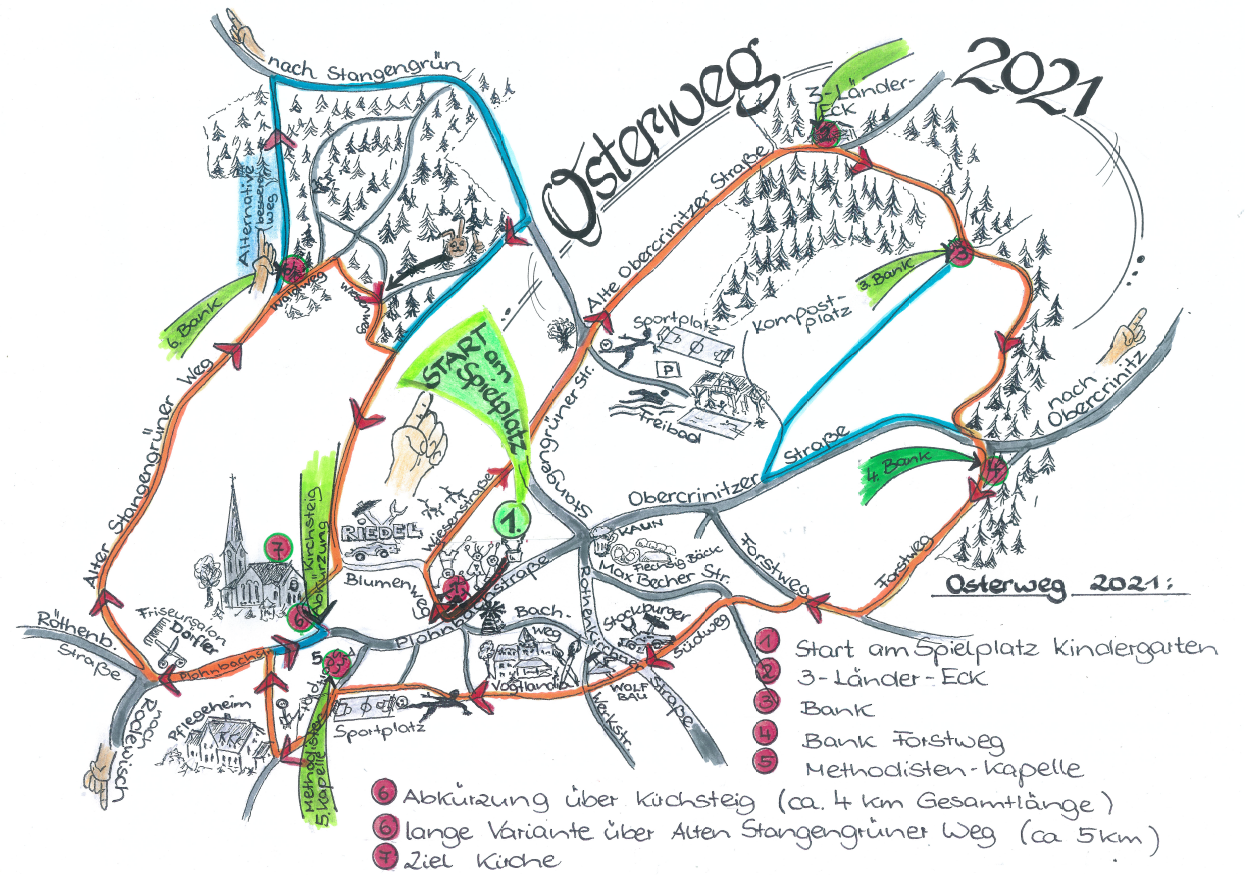 Osterweg 2021
nach Stangengrün
3-Länder-
Eck
2
Alternative
(bessere
Weg)
6. Bank
6
Waldweg
Wiesengrund
Alter Stangengrüner Weg
START am
Spielplatz
1.
Alte Obercrinitzer Straße
Stangengrüner Str.
Sportplatz
P
Freibad
Kompost-
platz
3. Bank
3
nach
Obercrinitz
4. Bank
4
Obercrinitzer Straße
Forstweg
Forstweg
KAUN
Fleischig Bäck
Max Becher Str.
Stockburger
Südweg
WOLF
BAU
Rothenkirchner Straße
Werkstr.
Bach-
weg
Vogtländer
Wiesenstraße
1
RIEDEL
Blumenweg
Plohnbachstraße
Kirchsteig
Abkürzung
7
6
5
Friseursalon
Dörfler
Röthenb.
Straße
Plohnbachstr.
nach
Rodewisch
Pflegeheim
Sportplatz
Methodisten
5. Kapelle
Osterweg 2021:
1 Start am Spielplatz Kindergarten
2 3-Länder-Eck
3 Bank
4 Bank Forstweg
5 Methodisten-Kapelle
6 Abkürzung über Kirchsteig (ca. 4 km Gesamtlänge)
6 lange Variante über Alten Stangengrüner Weg (ca 5km)
7 Ziel Kirche